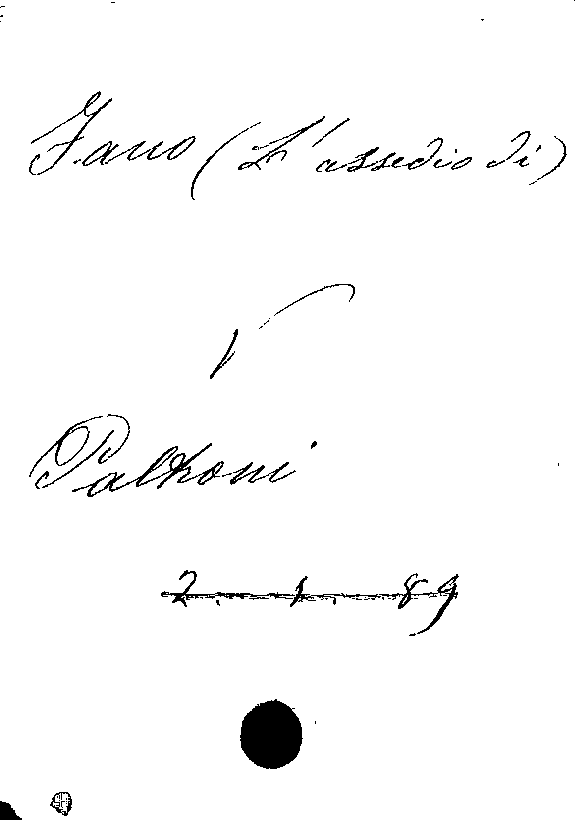 Fano (L'assedio di)
V
Paltroni
2. 1. 89